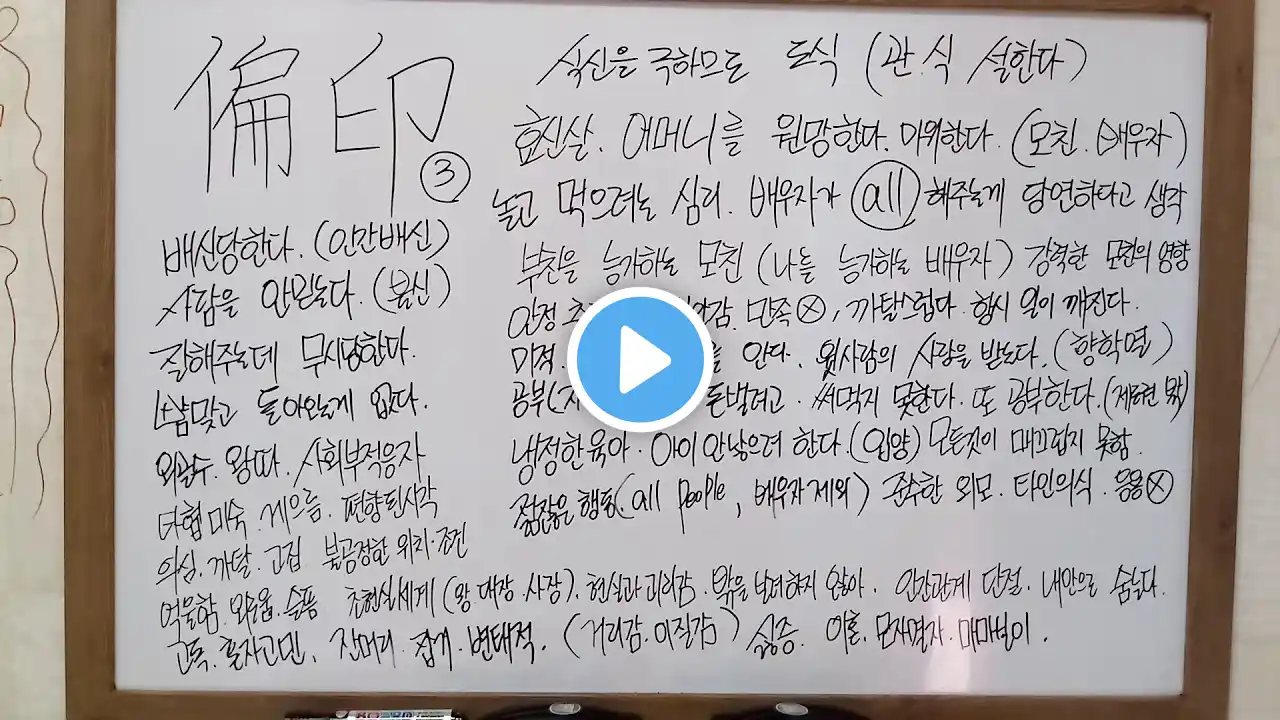 偏印 ③
식신을 극하므로 도식 (관.식 설한다)
효신살. 어머니를 원망한다. 미워한다. (모친. 배우자)
놀고 먹으려는 심리. 배우자가 all 해주는게 당연하다고 생각
부친을 능가하는 모친 (나를 능가하는 배우자) 강력한 모친의 영향
안정 감. 만족 ⓧ, 까탈스럽다. 항시 일이 깨진다.
미적. 안다. 윗사람의 사랑을 받는다. (향학열)
공부( 돈벌려고. 써먹지 못한다. 또 공부한다.
냉정한 육아. 아이 안낳으려 한다. (입양) 모든것이 매끄럽지 못함.
점잖은 행동(all people, 배우자 제외) 준수한 외모. 타인의식. 응용ⓧ
배신당한다. (인간배신)
사람을 안믿는다. (불신)
잘해주는데 무시당한다.
뺨맞고 돌아오는게 없다.
왕따. 사회부적응자
타협 미숙. 게으름. 편향된시각
의심. 까탈. 고집. 불공정한 위치.조건
억울함. 외로움. 슬픔 초현실세계 (왕.대장.사장). 현실과 괴리감. 밖을 보려하지 않아. 인간관계 단절. 내안으로 숨는다.
고독. 혼자고민. 잔머리. 잡기. 변태적. (거리감.이질감) 싫증. 이혼.